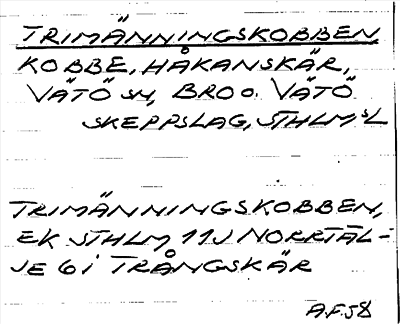 TRIMÄNNINGSKOBBEN
KOBBE, HÅKANSKÄR,
VÄTÖ SN, BRO O. VÄTÖ
SKEPPSLAG, STHLMSL
TRIMÄNNINGSKOBBEN,
EK STHLM, 11J NORRTÄL-
JE 6 i TRÅNGSKÄR
A.F. 58